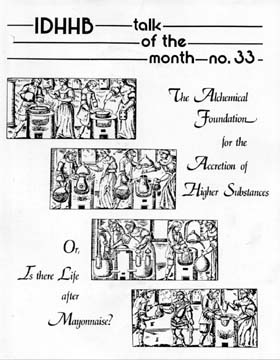 IDHHB talk
of the
month no. 33
The Alchemical
Foundation
for the
Accretion of
Higher Substances
Or,
Is there Life
after
Mayonnaise?